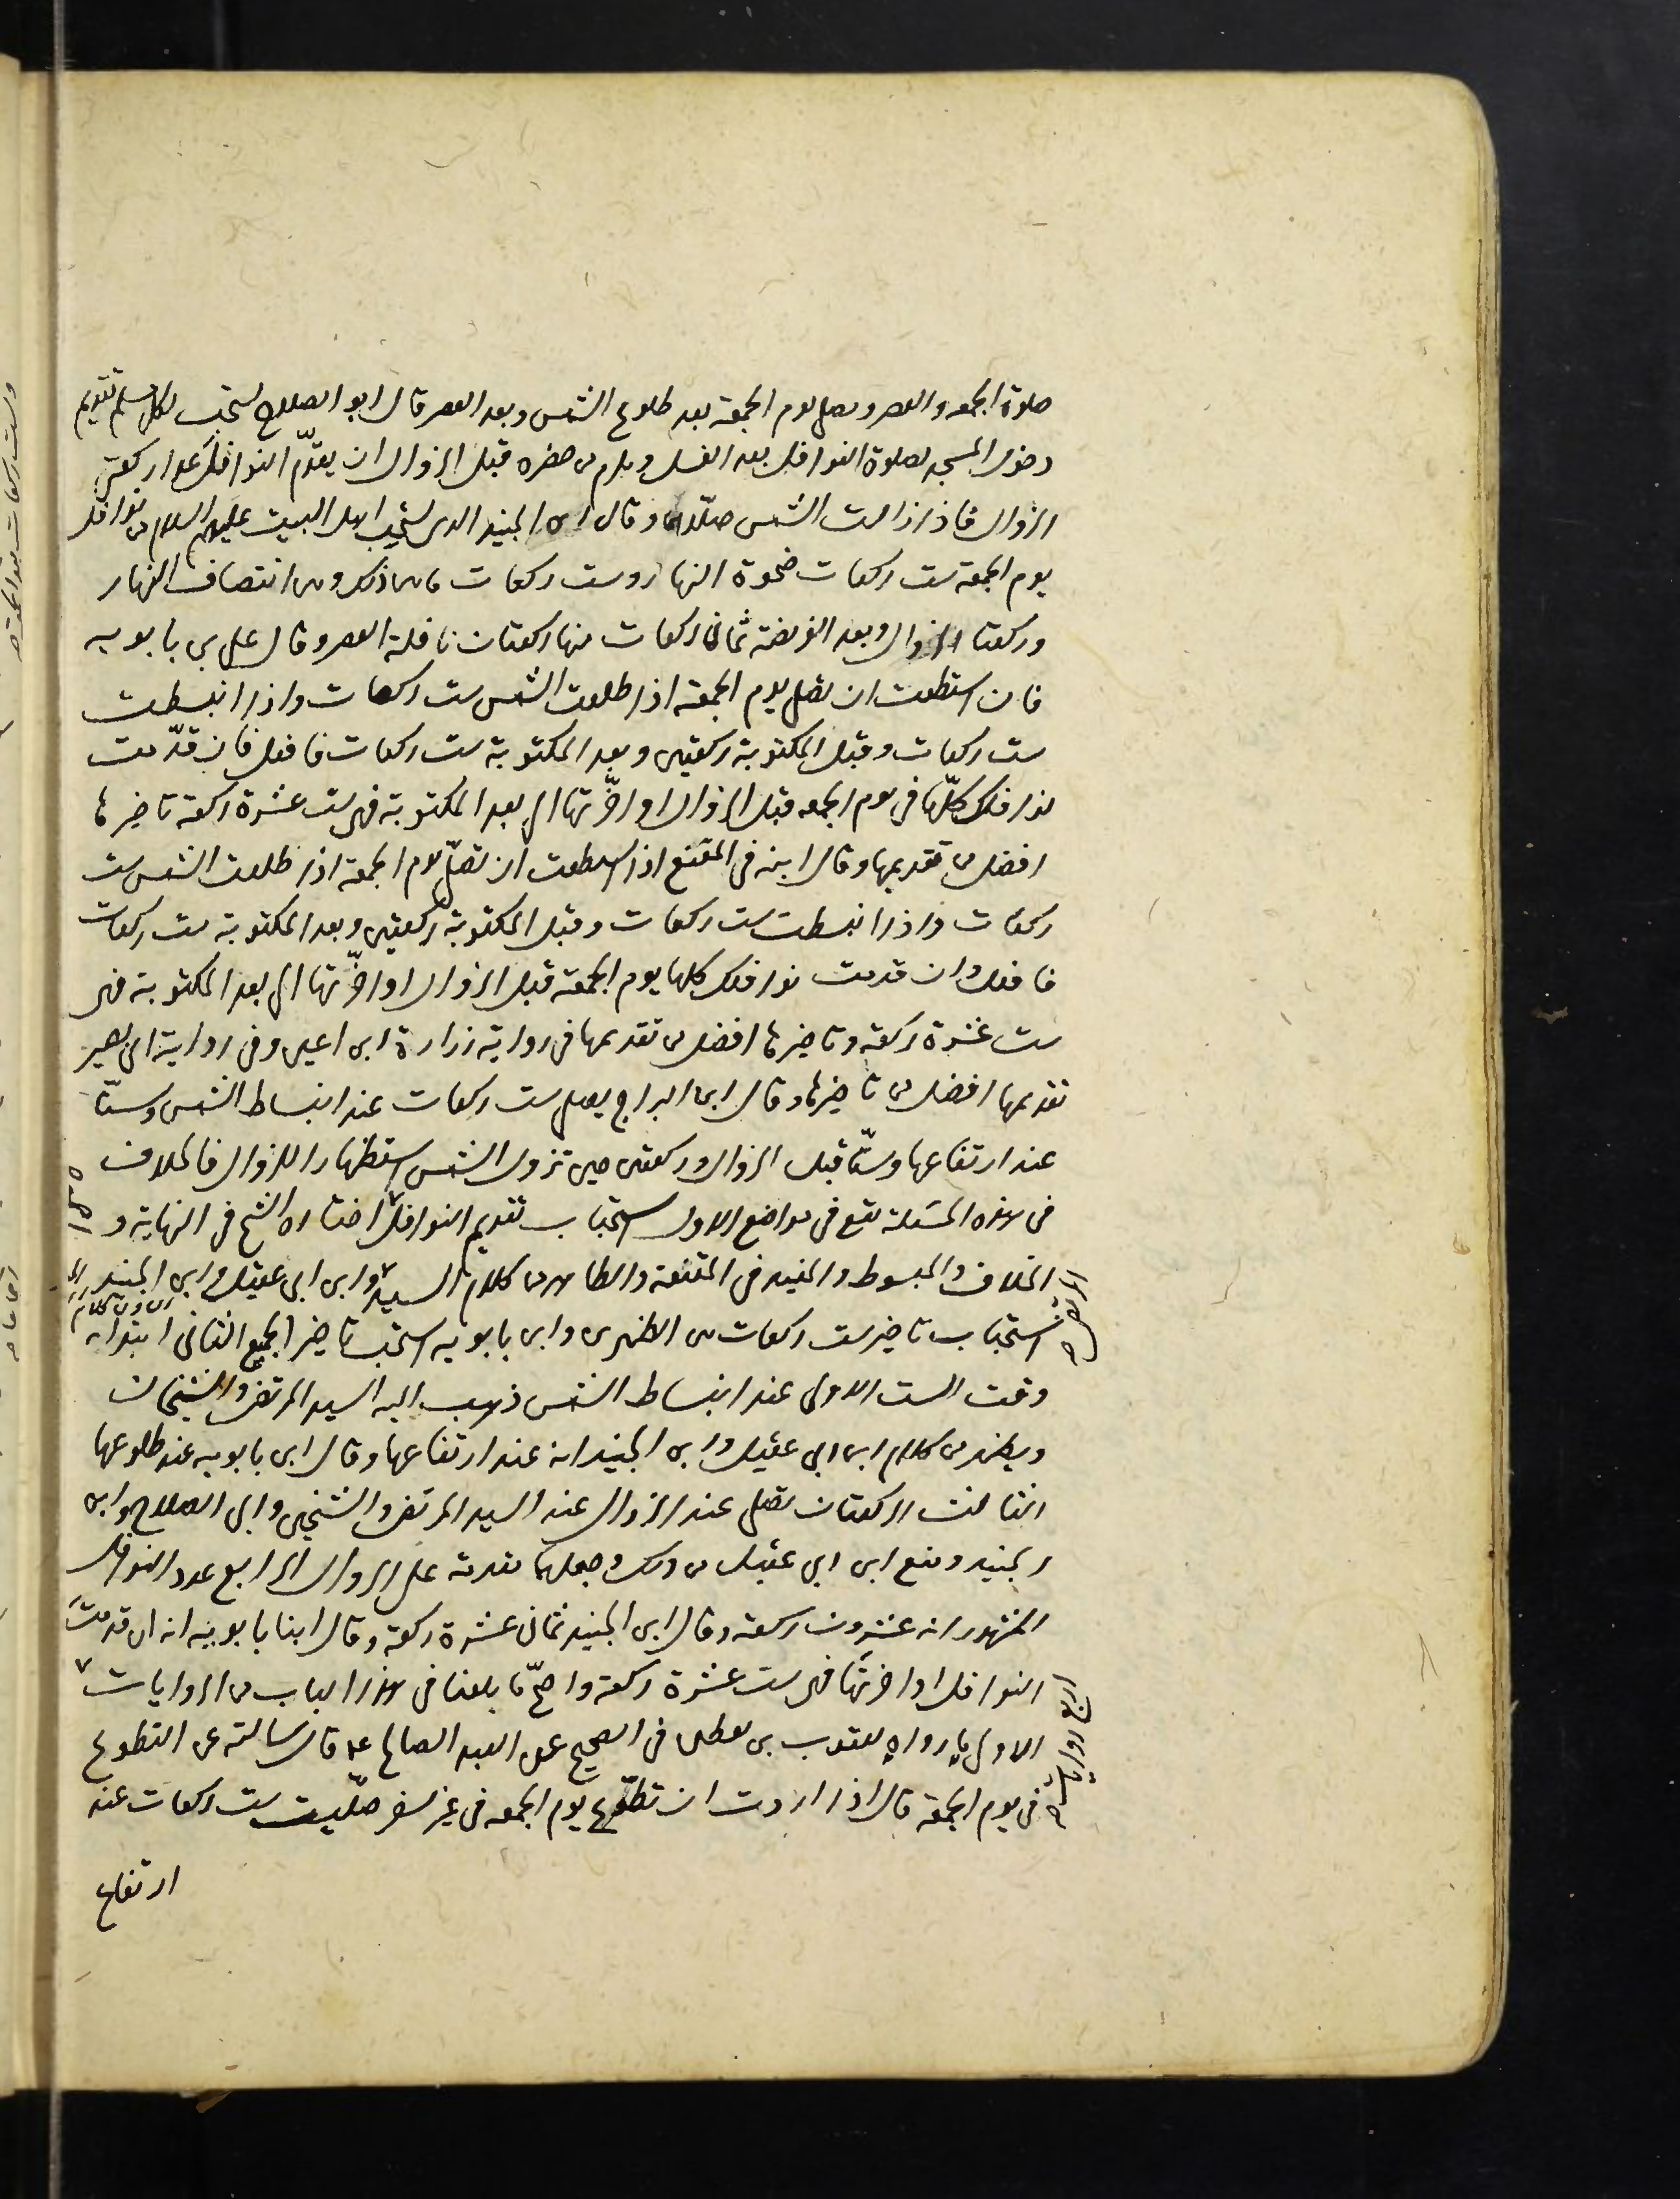 صلوة الجمعه والعصر ويصلى يوم الجمعة بعد طلوع الشمس وبعد العصر قال ابو الصلاح يستحب لكل مسلم تقديم
دخول المسجد لصلوة النوافل بعد الغسل ويلزم من حضره قبل الزوال ان يقدّم النوافل عدا ركعتى
الزوال فاذا زالت الشمس صلّاهما وقال ابن الجنيد الذى يستحب اهل البيت عليهم السلام من نوافل
يوم الجمعة ست ركعات ضحوة النهار وست ركعات ما بين ذلك وبين انتصاف النهار
وركعتا الزوال وبعد الفريضة ثمانى ركعات منها ركعتان نافلة العصر وقال على بن بابويه
فان استطعت ان تصلى يوم الجمعة اذا طلعت الشمس ست ركعات واذا انبسطت
ست ركعات وقبل المكتوبة ركعتين وبعد المكتوبة ست ركعات فافعل فان قدّمت
نوافلك كلّها فى يوم الجمعه قبل الزوال او اخّرتها الى بعد المكتوبة فهى ست عشرة ركعة تاخيرها
افضل من تقديمها وقال ابنه فى المقنع اذا استطعت ان تصلّى يوم الجمعة اذا طلعت الشمس ست
ركعات واذا انبسطت ست ركعات وقبل المكتوبة ركعتين وبعد المكتوبة ست ركعات
فافعل وان قدمت نوافلك كلها يوم الجمعة قبل الزوال او اخّرتها الى بعد المكتوبة فهى
ست عشرة ركعة وتاخيرها افضل من تقديمها فى رواية زرارة ابن اعين وفى رواية ابى بصير
تقديمها افضل من تاخيرها وقال ابن البراج يصلى ست ركعات عند انبساط الشمس وستّا
عند ارتفاعها وستّا قبل الزوال وركعتى حين تزول الشمس استظهارا للزوال فالخلاف
فى هذه المسئلة يقع فى مواضع الاول استحباب تقديم النوافل اختاره الشيخ فى النهاية و
الخلاف والمبسوط والمفيد فى المقنعة والظاهر من كلام السيد وابن ابى عقيل وابن الجنيد
استحباب تاخير ست ركعات بين الظهرين وابن بابويه استحب تاخير الجميع الثانى ابتداء
وقت الست الاولى عند انبساط الشمس ذهب اليه السيد المرتضى والشيخان
ويظهر من كلام ابن ابى عقيل وابن الجنيد انه عند ارتفاعها وقال ابن بابويه عند طلوعها
الثالث الركعتان تصلى عند الزوال عند السيد المرتضى والشيخين وابى الصلاح وابن
الجنيد ومنع ابن ابى عقيل من ذلك وجعلها مقدمة على الزوال الرابع عدد النوافل
المشهور انه عشرون ركعة وقال ابن الجنيد ثمانى عشرة ركعة وقال ابنا بابويه انه ان قدمت
النوافل او اخرتها فهى ست عشرة ركعة واصحّ ما بلغنا فى هذا الباب من الروايات
الاولى ما رواه يعقوب بن يقطين فى الصحيح عن العبد الصالح ع قال سالته عن التطوع
فى يوم الجمعة قال اذا اردت ان تطوّع يوم الجمعه فى غير سفر صلّيت ست ركعات عند
ارتفاع